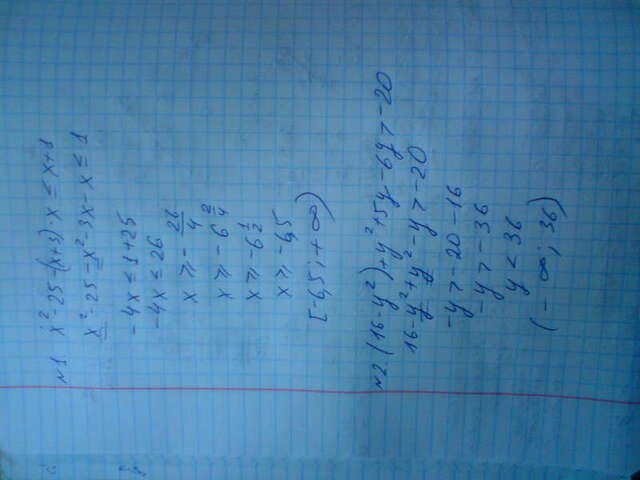 №1 x² - 25 - (x+3)·x ≤ x+1
x² - 25 - x² - 3x - x ≤ 1
-4x ≤ 1+25
-4x ≤ 26
x ≥ - 26/4
x ≥ - 6 2/4
x ≥ - 6 1/2
x ≥ - 6,5
[-6,5; +∞)
№2 (16-y²)+y²+5y-6y > -20
16-y²+y²-y > -20
-y > -20-16
-y > -36
y < 36
(-∞; 36)